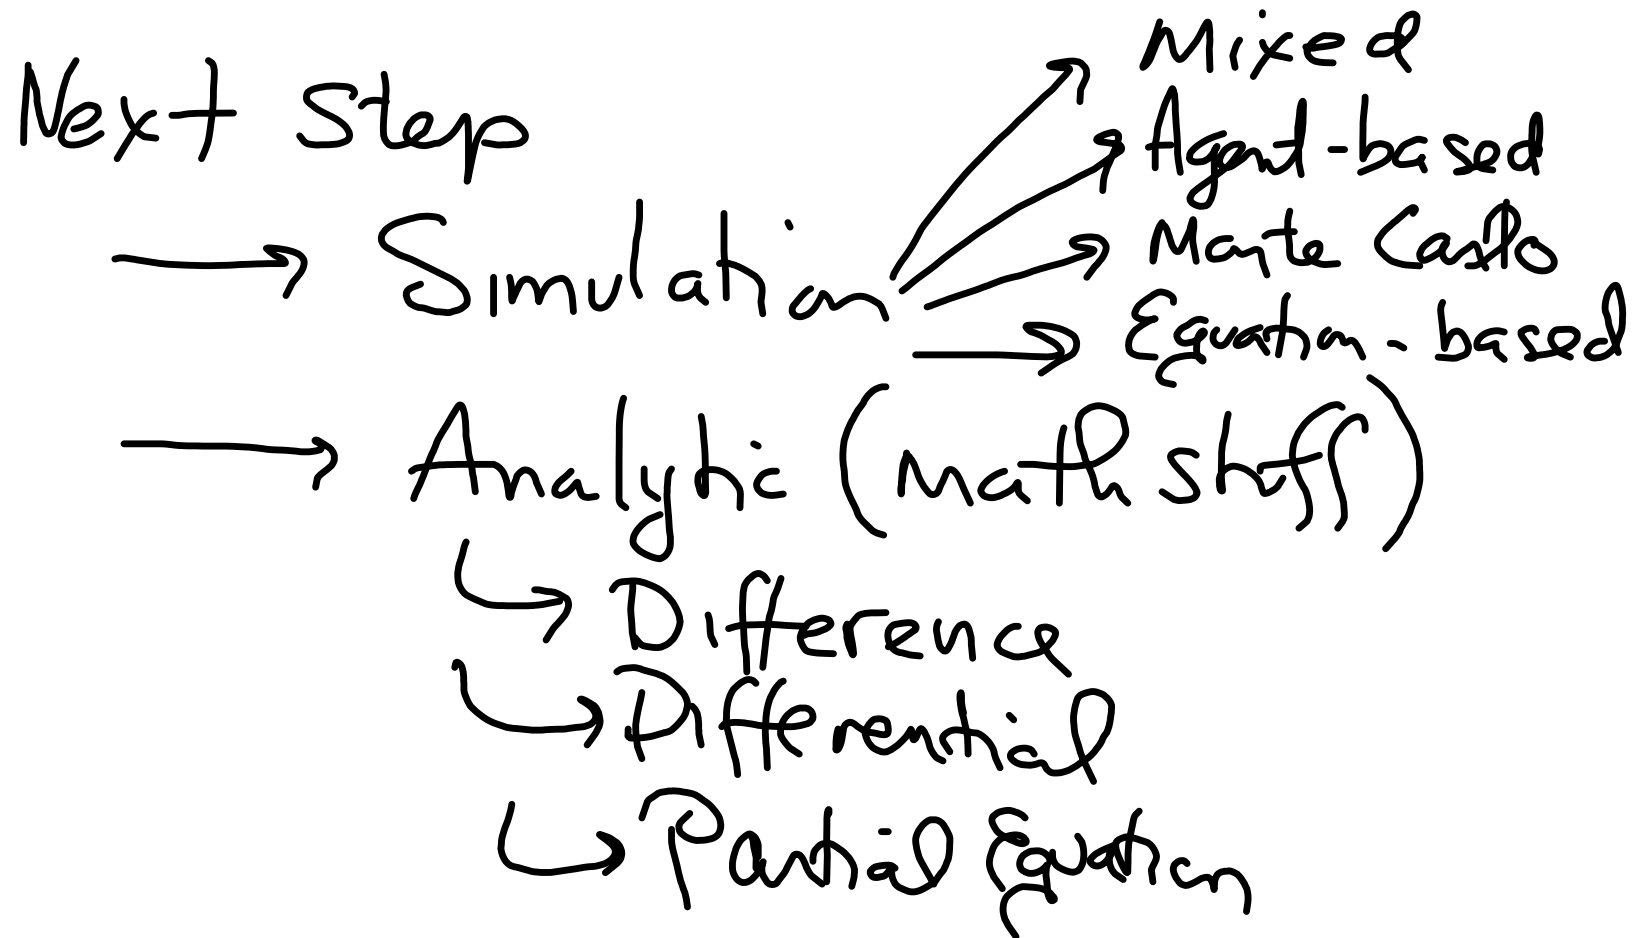 Next Step
Mixed
Agent-based
Monte Carlo
Equation-based
→ Simulation
→ Analytic (math stuff)
Difference
Differential
Partial Equation